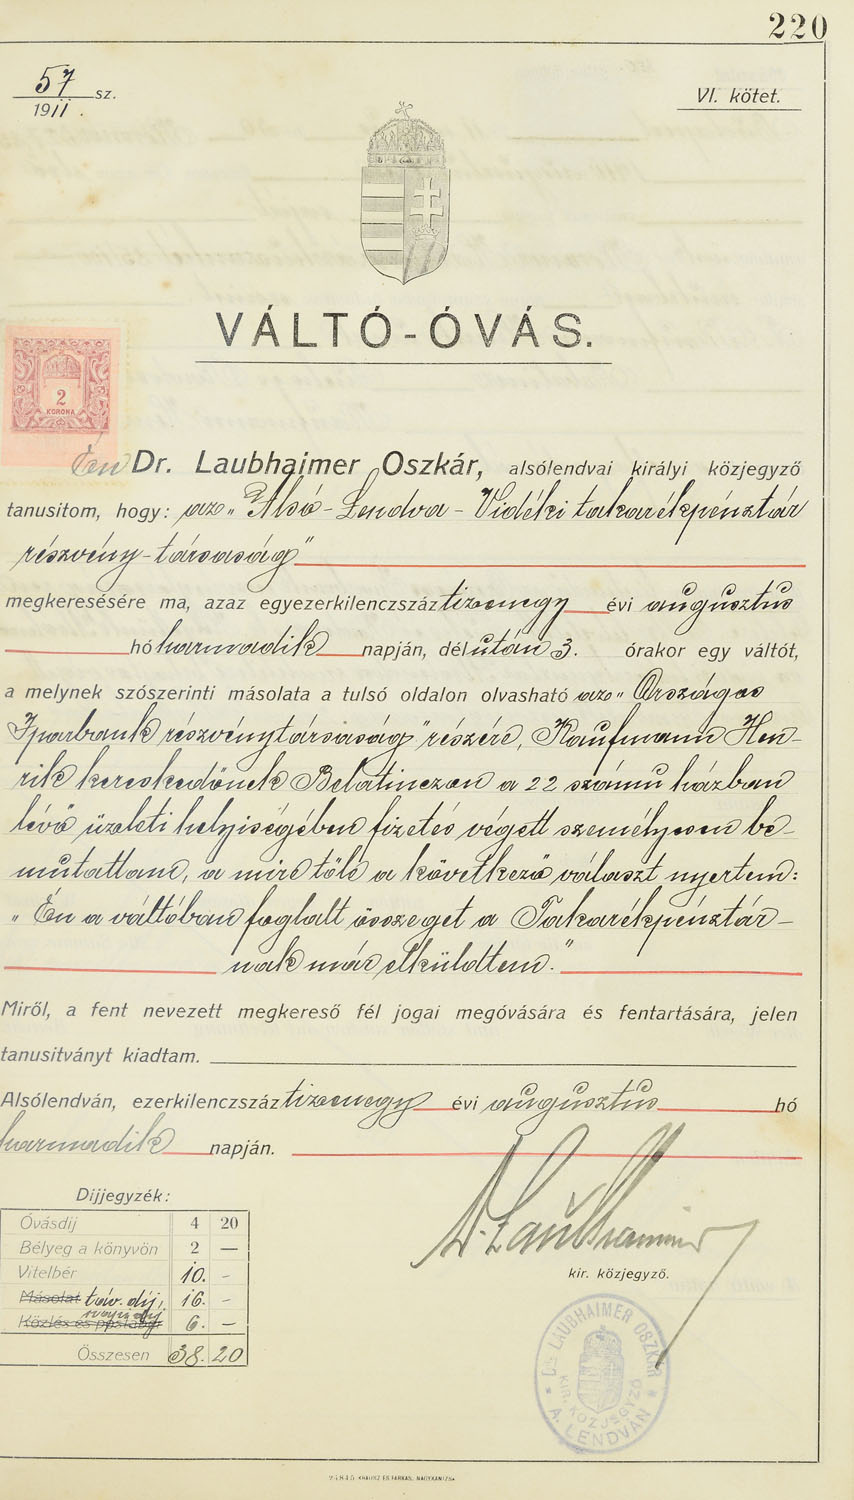 220
57 sz.
1911.
VI. kötet.
VÁLTÓ-ÓVÁS.
2
KORONA
Én Dr. Laubhaimer Oszkár, alsólendvai királyi közjegyző
tanusitom, hogy: az „Alsó-Lendva-Vidéki takarékpénztár
részvény-társaság"
megkeresésére ma, azaz egyezerkilenczszáz tizenegy évi augusztus
hó harmadik napján, délután 3. órakor egy váltót,
a melynek szószerinti másolata a tulsó oldalon olvasható az „Országos
Iparbank részvénytársaság" részére, Kaufmann Hen-
rik kereskedőnek Belatinczon a 22 számu házban
lévő üzleti helyiségében fizetés végett személyesen be-
mutattam, a mire tőle a következő választ nyertem:
„Én a váltóban foglalt összeget a Takarékpénztár-
nak már elküldtem."
Miről, a fent nevezett megkereső fél jogai megóvására és fentartására, jelen
tanusitványt kiadtam.
Alsólendván, ezerkilenczszáz tizenegy évi augusztus hó
harmadik napján.
Dijjegyzék:
Óvásdij 4 20
Bélyeg a könyvön 2 —
Vitelbér 10. -
Másolat táv. díj, 16. -
Közlés és postabér 6. —
Összesen 38. 20
kir. közjegyző.
Dr. LAUBHAIMER OSZKÁR
KIR. KÖZJEGYZŐ
A. LENDVÁN
KRAUSZ ÉS FARKAS, NAGYKANIZSA